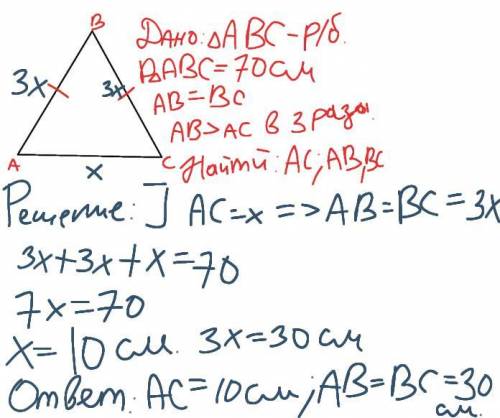 B
Дано: △ABC – р/б.
3x
3x
PABC = 70 см
AB = BC
AB > AC в 3 раза.
A
x
C
Найти: AC; AB, BC
Решение: ] AC = x => AB = BC = 3x
3x + 3x + x = 70
7x = 70
x = 10 см. 3x = 30 см
Ответ: AC = 10 см; AB = BC = 30
см.